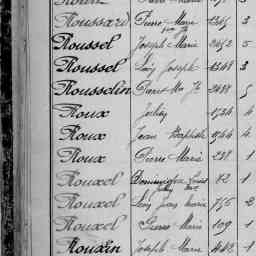 Roussard Pierre Marie 1265 3
Roussel Joseph Marie 2462 5
Roussel Joseph 1548 3
Rousselin 2488 5
Roux 1724 4
Roux Jean Baptiste 1744 4
Roux Pierre Marie 238 1
Rouxel Dominique Louis 82 1
Rouxel Jean Marie 755 2
Rouxel Pierre Marie 109 1
Rouxin Joseph Marie 442 1